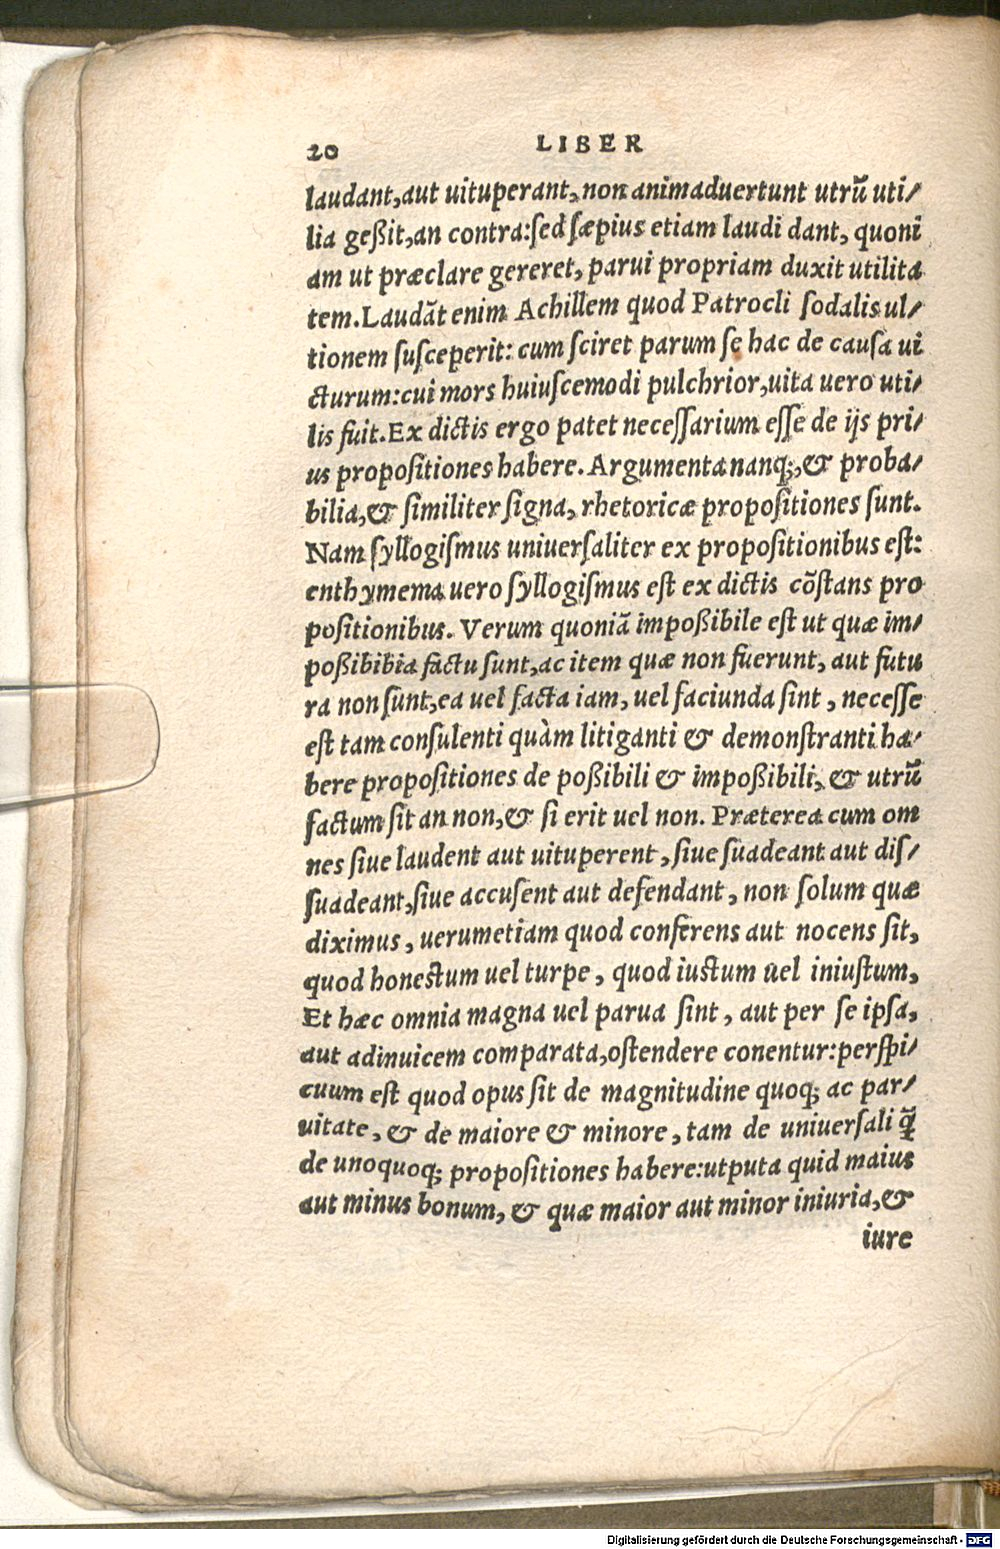 20 LIBER
laudant, aut uituperant, non animaduertunt utrũ uti/
lia geßit, an contra: ſed ſæpius etiam laudi dant, quoni
am ut præclare gereret, parui propriam duxit utilita
tem. Laudãt enim Achillem quod Patrocli ſodalis ul/
tionem ſuſceperit: cum ſciret parum ſe hac de cauſa ui
cturum: cui mors huiuſcemodi pulchrior, uita uero uti/
lis fuit. Ex dictis ergo patet neceſſarium eſſe de ijs pri/
us propoſitiones habere. Argumenta nanq;, & proba/
bilia, & ſimiliter ſigna, rhetoricæ propoſitiones ſunt.
Nam ſyllogiſmus uniuerſaliter ex propoſitionibus eſt:
enthymema uero ſyllogiſmus eſt ex dictis cõſtans pro
poſitionibus. Verum quoniã impoßibile eſt ut quæ im/
poßibibia factu ſunt, ac item quæ non fuerunt, aut futu
ra non ſunt, ea uel facta iam, uel faciunda ſint, neceſſe
eſt tam conſulenti quàm litiganti & demonſtranti ha/
bere propoſitiones de poßibili & impoßibili, & utrũ
factum ſit an non, & ſi erit uel non. Præterea cum om
nes ſiue laudent aut uituperent, ſiue ſuadeant aut diſ/
ſuadeant, ſiue accuſent aut defendant, non ſolum quæ
diximus, uerumetiam quod conferens aut nocens ſit,
quod honeſtum uel turpe, quod iuſtum uel iniuſtum,
Et hæc omnia magna uel parua ſint, aut per ſe ipſa,
aut adinuicem comparata, oſtendere conentur: perſpi/
cuum eſt quod opus ſit de magnitudine quoq; ac par/
uitate, & de maiore & minore, tam de uniuerſali q̃
de unoquoq; propoſitiones habere: utputa quid maius
aut minus bonum, & quæ maior aut minor iniuria, &
iure
Digitalisierung gefördert durch die Deutsche Forschungsgemeinschaft - DFG